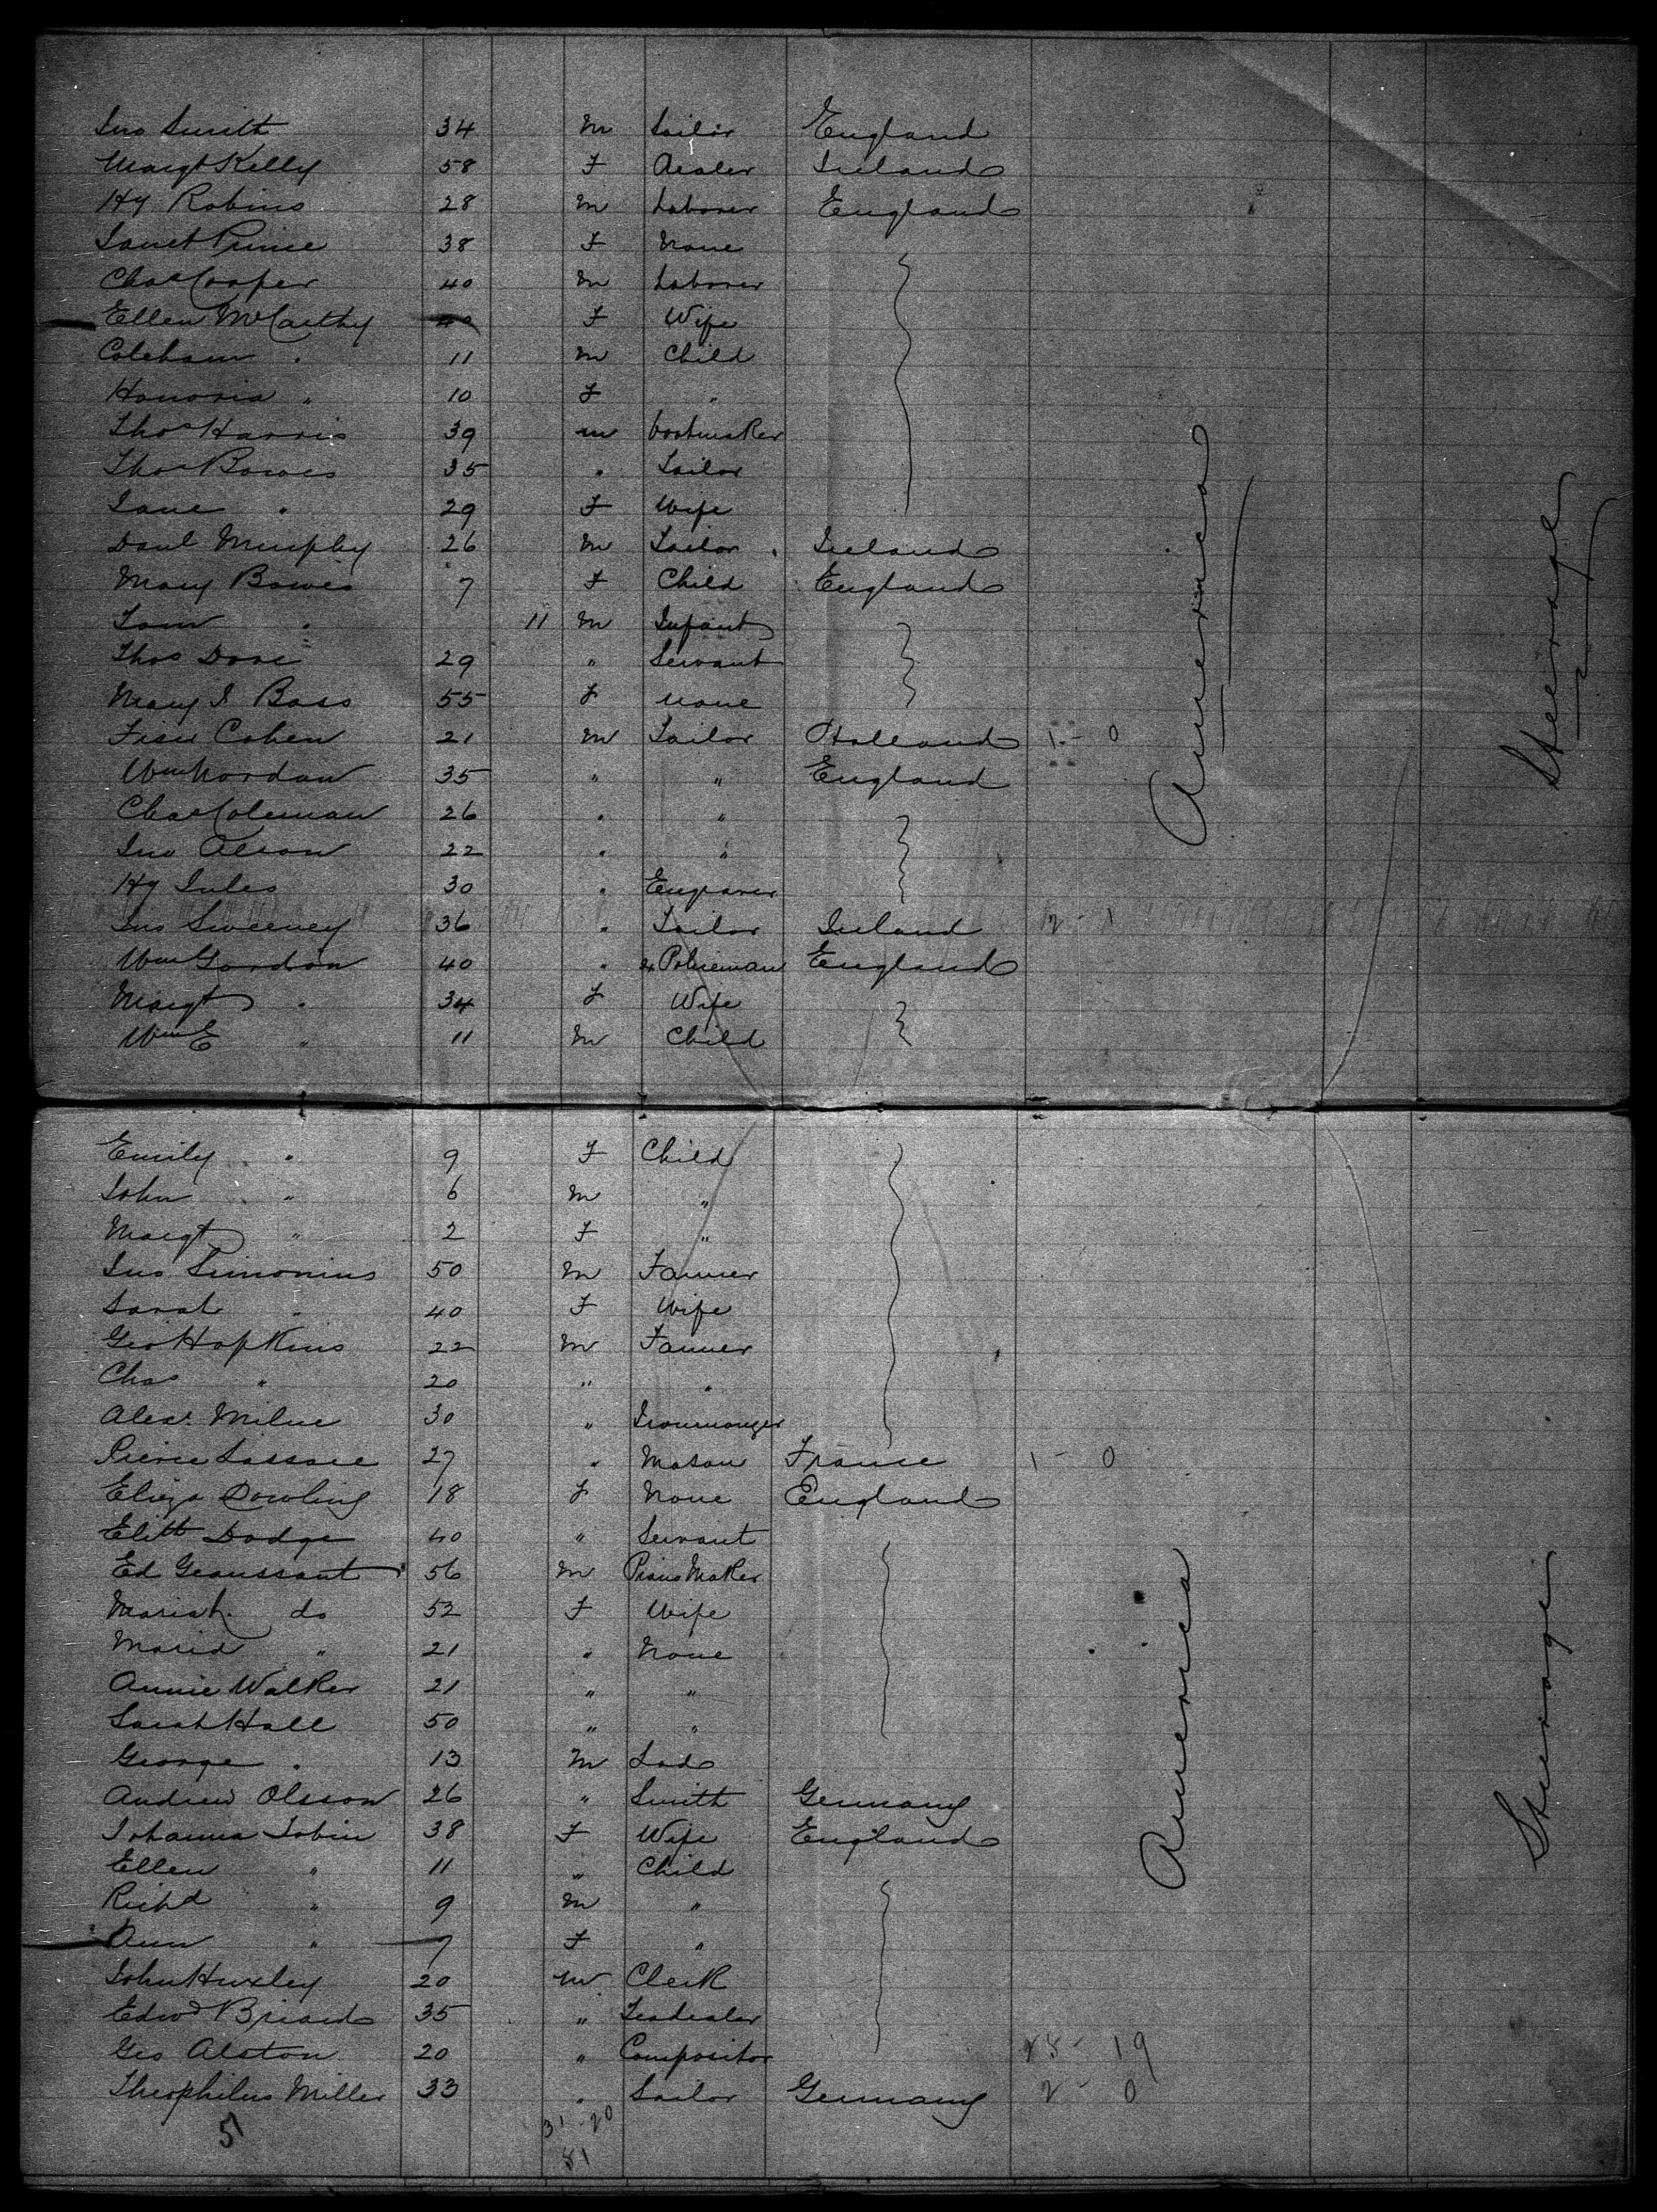 Jno Smith 34 M Sailor England
Margt Kelly 58 F Dealer Ireland
Hy Robins 28 M Laborer England
Janet Prince 38 F None
Chas Cooper 40 M Laborer
Ellen McCarthy 40 F Wife
" 11 M Child
Honoria " 10 F "
Thos Harris 39 M Bootmaker
Thos Bowes 35 " Tailor
Jane " 29 F Wife
Danl Murphy 26 M Tailor Ireland
Mary Bowes 7 F Child England
Tom " 11 M Infant
Thos Dore 29 " Servant
Mary J Bass 55 F None
Cohen 21 M Tailor Holland 1 - 0
Wm Nordan 35 " " England
Chas Coleman 26 " "
Jno 22 " "
Hy Jules 30 " Engraver
Jno Sweeney 36 " Tailor Ireland 2 - 1
Wm Gordon 40 " ex Policeman England
Margt " 34 F Wife
Wm E " 11 M Child
America
Steerage
Emily " 9 F Child
John " 6 M "
Margt " 2 F "
Jno Simonius 50 M Farmer
Sarah " 40 F Wife
Geo Hopkins 22 M Farmer
Chas " 20 " "
Alexr Milne 30 " Ironmonger
Pierre Lassare 27 " Mason France 1 - 0
Eliza Dowling 18 F None England
Elizth Dodge 40 " Servant
Ed Geaussant 56 M Piano Maker
Mariah do 52 F Wife
Maria " 21 " None
Annie Walker 21 " "
Sarah Hall 50 " "
George " 13 M Lad
Andrew Olsson 26 " Smith Germany
Johanna Tobin 38 F Wife England
Ellen " 11 " Child
Richd " 9 M "
Ann " 7 F "
John Huxley 20 M Clerk
Edwd Briard 35 " Teadealer
Geo Alston 20 " Compositor 25 - 19
Theophilus Miller 33 " Sailor Germany 2 - 0
51 31 - 20
51
America
Steerage